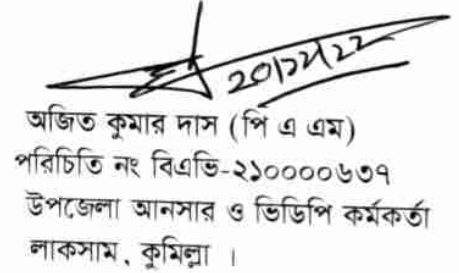 20/12/22
অজিত কুমার দাস (পি এ এম)
পরিচিতি নং বিএভি-২১০০০০৬৩৭
উপজেলা আনসার ও ভিডিপি কর্মকর্তা
লাকসাম, কুমিল্লা ।